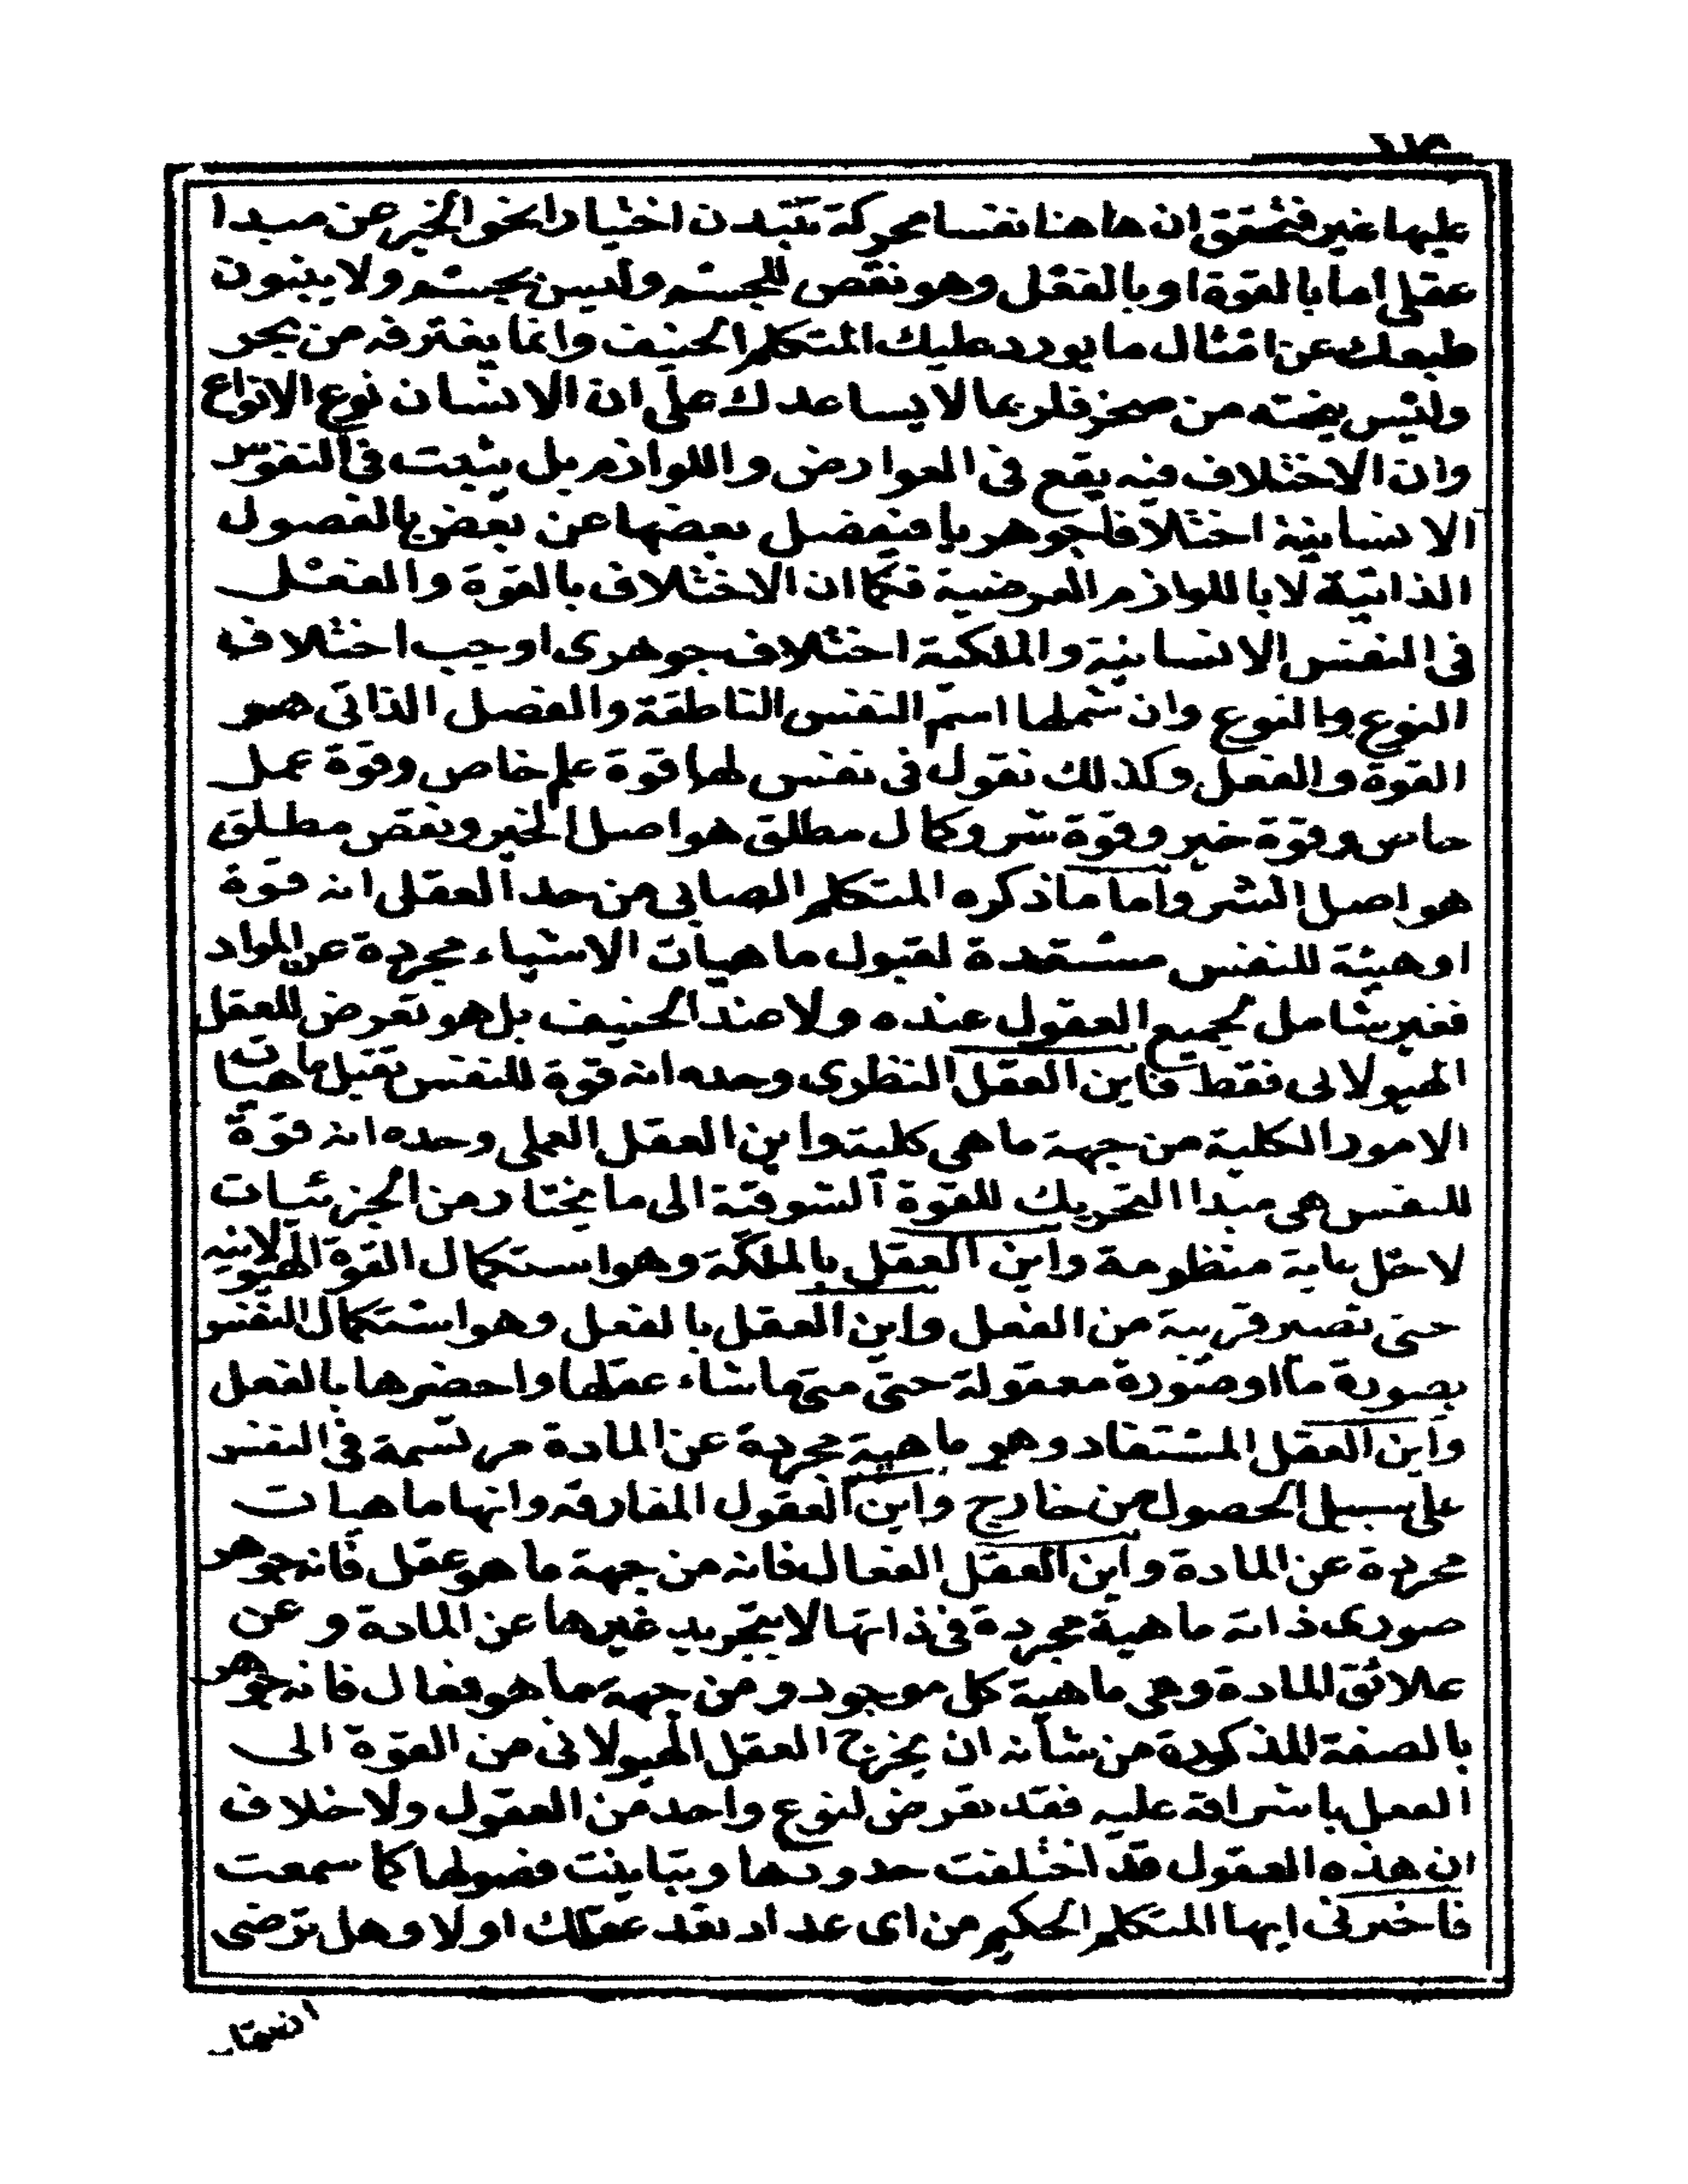 عليها غير فتحقق ان هاهنا نفسا محركة تتبدن اختيارا نحو الخير عن مبدا
عقلى اما بالقوة او بالفعل وهو نقص للجسم وليس بجسم ولا ينبون
طبعك عن امثال ما يورد عليك المتكلم الحنيف وانما يغترفه من بحر
وليس ينحته من صخر فلربما لا يساعدك على ان الانسان نوع الانواع
وان الاختلاف فيه يقع فى العوارض واللوازم بل يثبت فى النفوس
الانسانية اختلافا جوهريا فيفصل بعضها عن بعض بالفصول
الذاتية لا باللوازم العرضية فكما ان الاختلاف بالقوة والفعل
فى النفس الانسانية والملكية اختلاف جوهرى اوجب اختلاف
النوع والنوع وان شملها اسم النفس الناطقة والفصل الذاتى هو
القوة والفعل وكذلك نقول فى نفس لها قوة علم خاص وقوة عمل
خاص وقوة خير وقوة شر وكمال مطلق هو اصل الخير ونقص مطلق
هو اصل الشر واما ما ذكره المتكلم الصابى من حد العقلى انه قوة
او هيئة للنفس مستعدة لقبول ماهيات الاشياء مجردة عن المواد
فغير شامل لجميع العقول عنده ولا عند الحنيف بل هو تعرض للعقل
الهيولانى فقط فاين العقل النظرى وحده انه قوة للنفس تقبل ماهيات
الامور الكلية من جهة ما هى كلية واين العقل العملى وحده انه قوة
للنفس هى مبدا التحريك للقوة الشوقية الى ما يختار من الجزئيات
لاجل غاية منظومة واين العقل بالملكة وهو استكمال القوة الهيولانيه
حتى تصير قريبة من الفعل واين العقل بالفعل وهو استكمال النفس
بصورة ما او صورة معقولة حتى متى ما شاء عقلها واحضرها بالفعل
واين العقل المستفاد وهو ماهية مجردة عن المادة مرتسمة فى النفس
على سبيل الحصول من خارج واين العقول المفارقة وانها ماهيات
مجردة عن المادة واين العقل الفعال فانه من جهة ما هو عقل فانه جوهر
صورى ذاته ماهية مجردة فى ذاتها لا بتجريد غيرها عن المادة وعن
علائق المادة وهى ماهية كل موجود ومن جهة ما هو فعال فانه جوهر
بالصفة المذكورة من شأنه ان يخرج العقل الهيولانى من القوة الى
الفعل باشراقه عليه فقد تعرض لنوع واحد من العقول ولا خلاف
ان هذه العقول قد اختلفت حدودها وتباينت فصولها كما سمعت
فاخبرنى ايها المتكلم الحكيم من اى عداد تعد عقلك اولا وهل ترضى